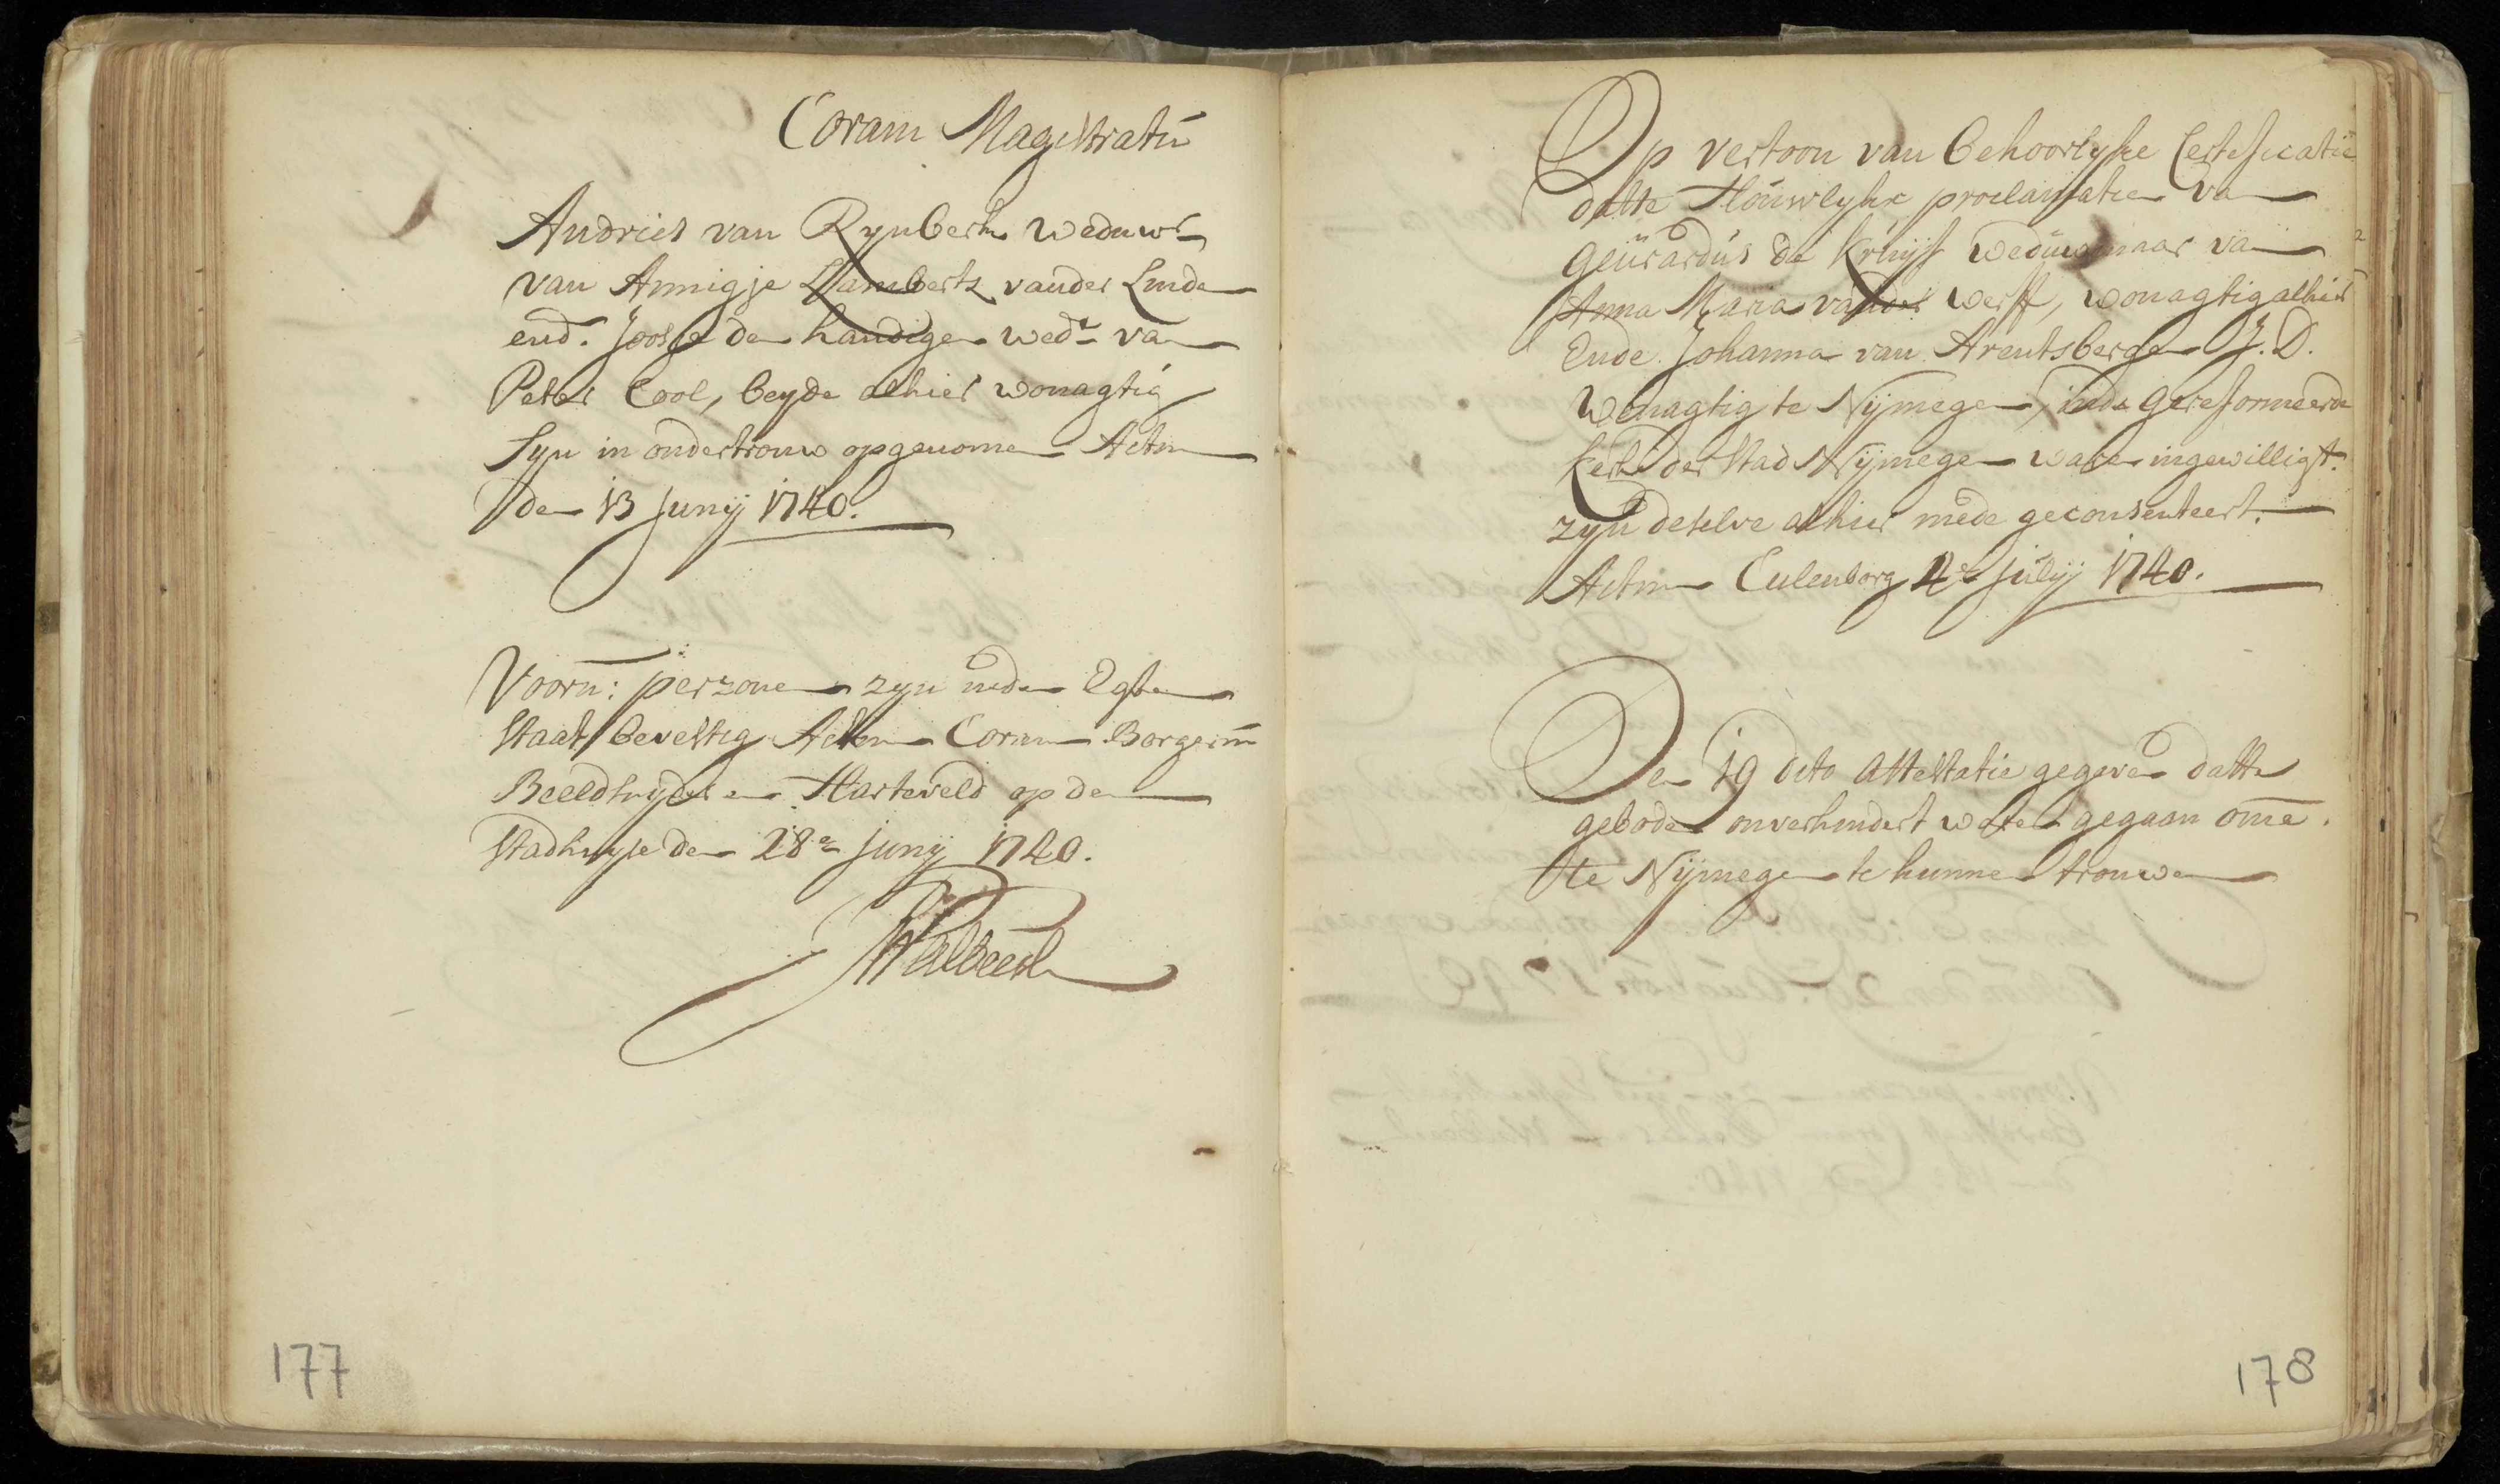 Coram Magistratú
Andries van Rynberk Weduwr
van Annigje Lamberts vander Linde
end. Joosje den handigen wedr van
Peter Cool, beyde alhier wonagtig
Syn in ondertrouw opgenomen Actum
den 13 Junij 1740.
Voorn: perzonen zyn inden Egten
Staat bevestig Actum Coram Borgerm̄
Beeldsnyder en Harteveld op den
Stadhuyse den 28en Junij 1740.
177
Op vertoon van behoorlyke Certificatie
datte Houwlyke proclamatien van
Geúrardús de Kruijf Weduwenaar van
Anna Maria vander Werff, wonagtig alhier
Ende Johanna van Arentsbergen J. D.
Wonagtig te Nijmegen, inde gereformeerde
kerke der Stad Nijmegen waren ingewilligt.
zyn deselve alhier mede geconsenteert.
Actum Culenborg 4en Julij 1740.
Den 19 dito Attestatie gegeven datte
geboden onverhindert waren gegaan om̄e.
te Nijmegen te kunnen trouwen
178